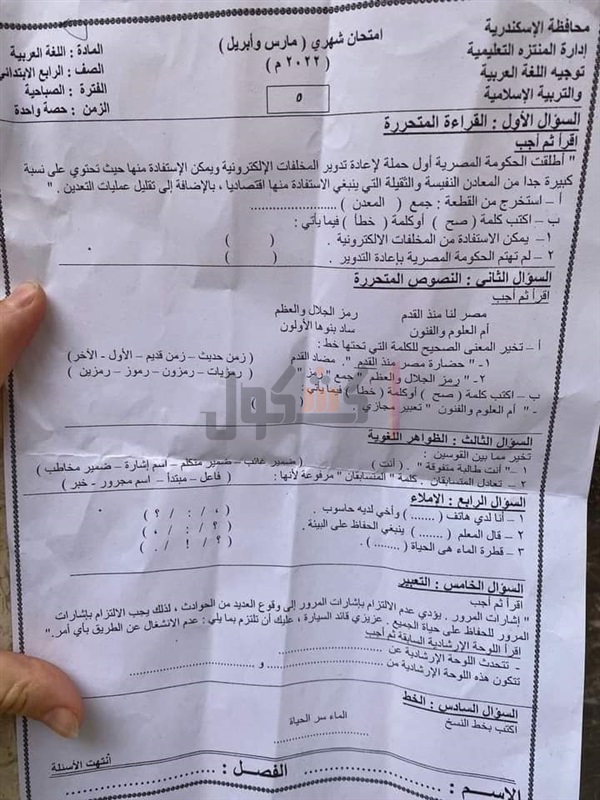 محافظة الإسكندرية
إدارة المنتزه التعليمية
توجيه اللغة العربية
والتربية الإسلامية
امتحان شهري ( مارس وأبريل )
( ٢٠٢٢ م )
٥
المادة : اللغة العربية
الصف : الرابع الابتدائي
الفترة : الصباحية
الزمن : حصة واحدة
السؤال الأول : القراءة المتحررة
اقرأ ثم أجب
" أطلقت الحكومة المصرية أول حملة لإعادة تدوير المخلفات الإلكترونية ويمكن الإستفادة منها حيث تحتوي على نسبة
كبيرة جدا من المعادن النفيسة والثقيلة التي ينبغي الاستفادة منها اقتصاديا ، بالإضافة إلى تقليل عمليات التعدين . "
أ – استخرج من القطعة : جمع ( المعدن ) ....................
ب – اكتب كلمة ( صح ) أوكلمة ( خطأ ) فيما يأتي :
١ – يمكن الاستفادة من المخلفات الالكترونية . ( )
٢ – لم تهتم الحكومة المصرية بإعادة التدوير . ( )
السؤال الثاني : النصوص المتحررة
اقرأ ثم أجب
مصر لنا منذ القدم رمز الجلال والعظم
أم العلوم والفنون ساد بنوها الأولون
أ – تخير المعنى الصحيح للكلمة التي تحتها خط :
١- " حضارة مصر منذ القدم ". مضاد القدم ( زمن حديث – زمن قديم – الأول – الآخر )
٢- " رمز الجلال والعظم " جمع " رمز " ( رمزيات – رمزون – رموز – رمزين )
ب – اكتب كلمة ( صح ) أوكلمة ( خطأ ) فيما يأتي :
-" أم العلوم والفنون " تعبير مجازي . ( )
كشكول
السؤال الثالث : الظواهر اللغوية
تخير مما بين القوسين :
١ – "أنت طالبة متفوقة " . ( أنت ) ( ضمير غائب – ضمير متكلم – اسم إشارة – ضمير مخاطب )
٢ – تعادل المتسابقان . كلمة " المتسابقان " مرفوعة لأنها : ( فاعل – مبتدأ – اسم مجرور - خبر )
السؤال الرابع : الإملاء
١ – أنا لدي هاتف ( ....... ) وأخي لديه حاسوب . ( ، / : / ؟ )
٢ – قال المعلم ( ....... ) ينبغي الحفاظ على البيئة . ( ؟ / : / ، )
٣ – قطرة الماء هى الحياة ( ........ ) . ( ؟ / ! / . )
السؤال الخامس : التعبير
اقرأ ثم أجب
" إشارات المرور . يؤدي عدم الالتزام بإشارات المرور إلى وقوع العديد من الحوادث ، لذلك يجب الالتزام بإشارات
المرور للحفاظ على حياة الجميع . عزيزي قائد السيارة ، عليك أن تلتزم بما يلي : عدم الانشغال عن الطريق بأي أمر."
اقرأ اللوحة الإرشادية السابقة ثم أجب
- تتحدث اللوحة الإرشادية عن ....................
تتكون هذه اللوحة الإرشادية من .................... و ....................
السؤال السادس : الخط
اكتب بخط النسخ
الماء سر الحياة
أنتهت الأسئلة
الاسم : .................... الفصل : ....................